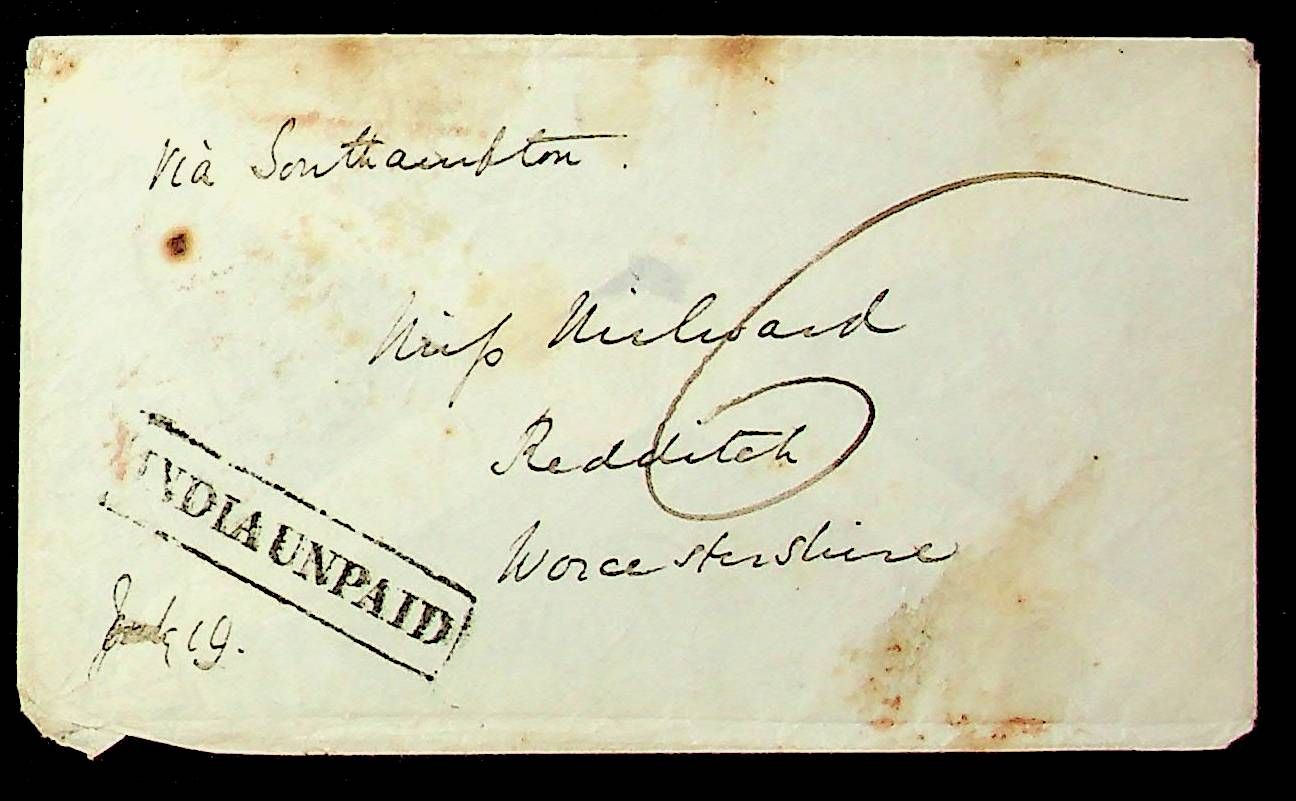 Vià Southampton.
6
Miss Milward
Redditch
Worcestershire
INDIA UNPAID
July 19.